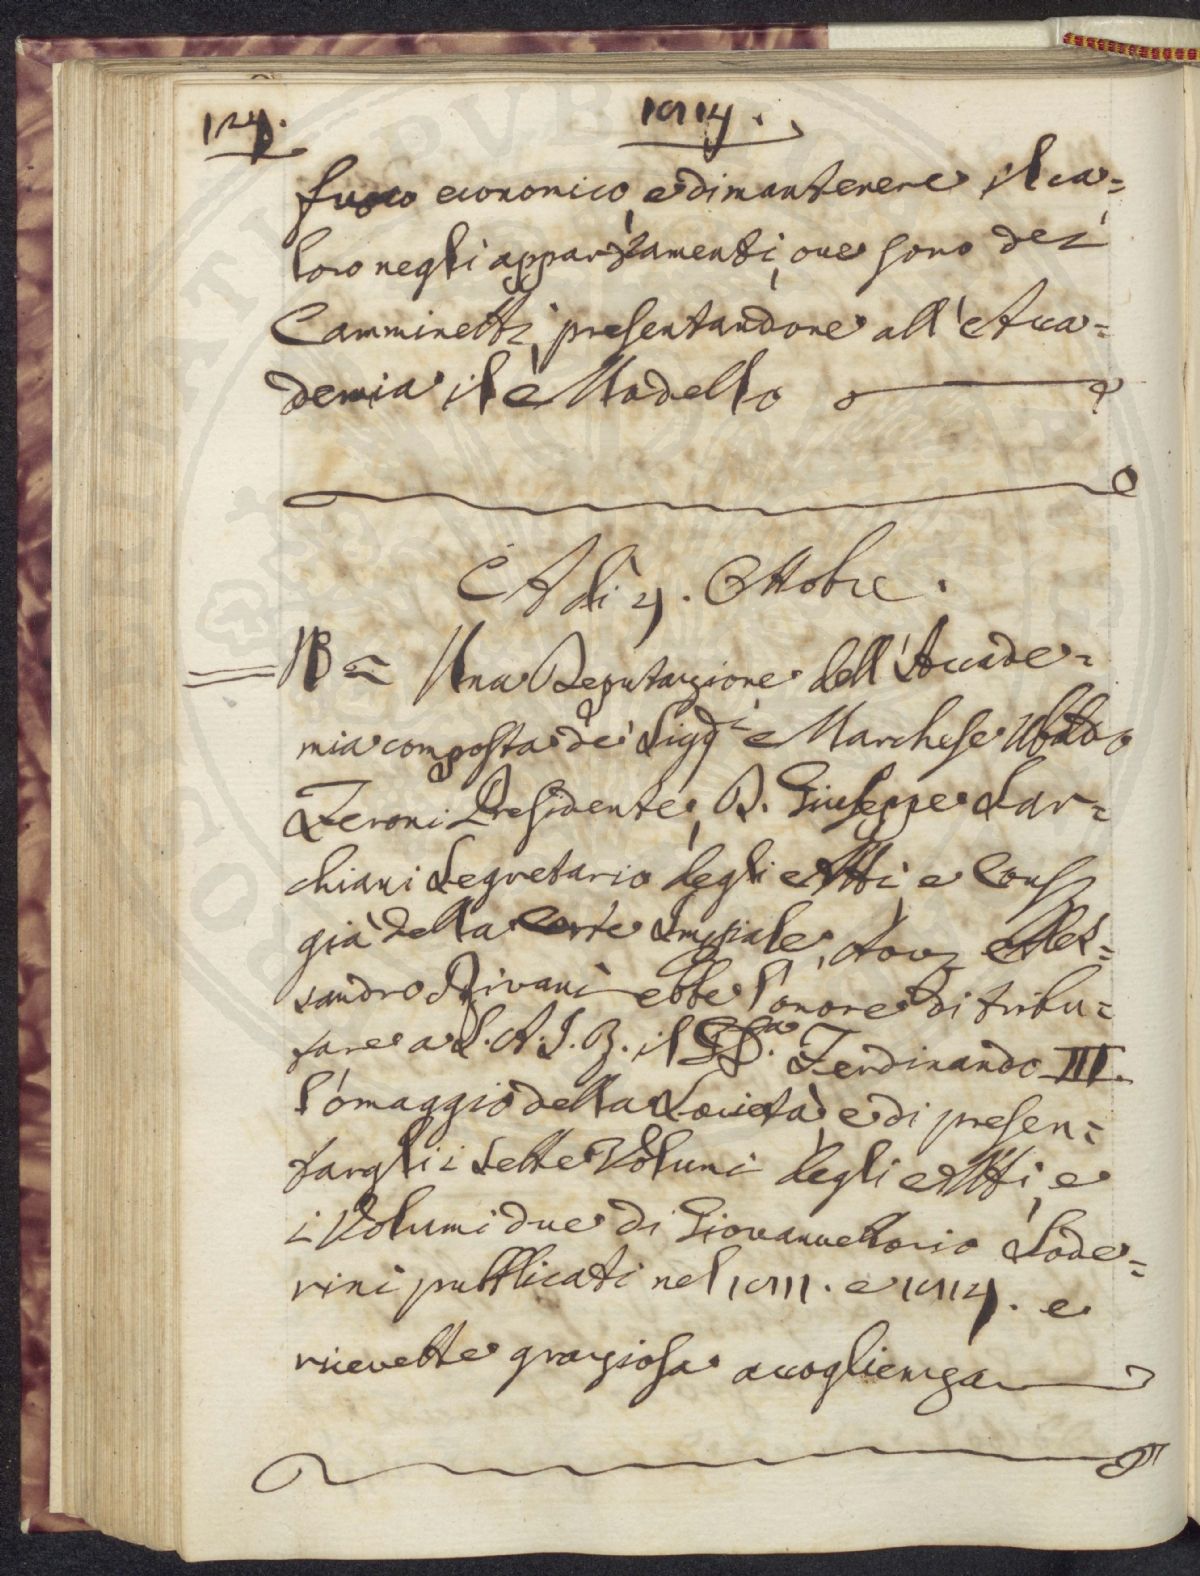 124. 1814.
fuoco economico, e di mantenere il ca=
loro negli appartamenti, ove sono dei
Camminetti, presentandone all'Acca=
demia il Modello
A dì 4. Ottobre.
NB = Una Deputazione dell'Accade=
mia composta dei Sigg.i Marchese Ubaldo
Feroni Presidente, D. Giuseppe Sar=
chiani Segretario degli Atti, e Cons
già della Corte Impiale, Avv Ales=
sandro Rivani ebbe l'onore di tribu=
tare a S. A. I. R. il GD.a Ferdinando III.
l'omaggio della Società, e di presen=
targli i sette Volumi degli Atti, e
i Volumi due di Giovanvettorio Sode=
rini pubblicati nel 1811. e 1814. e
ricevette graziosa accoglienza